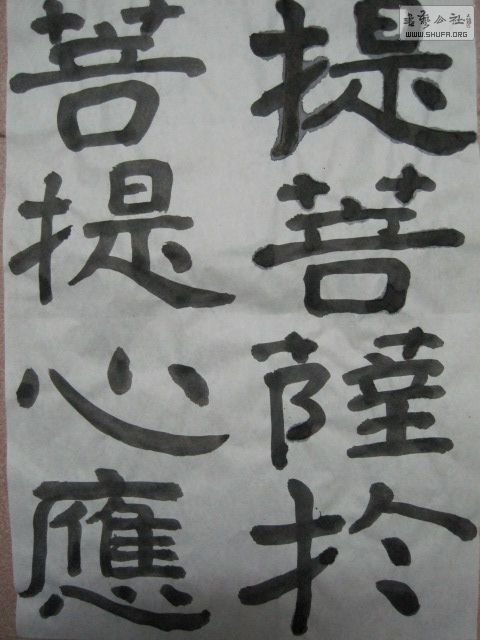 提菩薩於
菩提心應
書藝公社
WWW.SHUFA.ORG